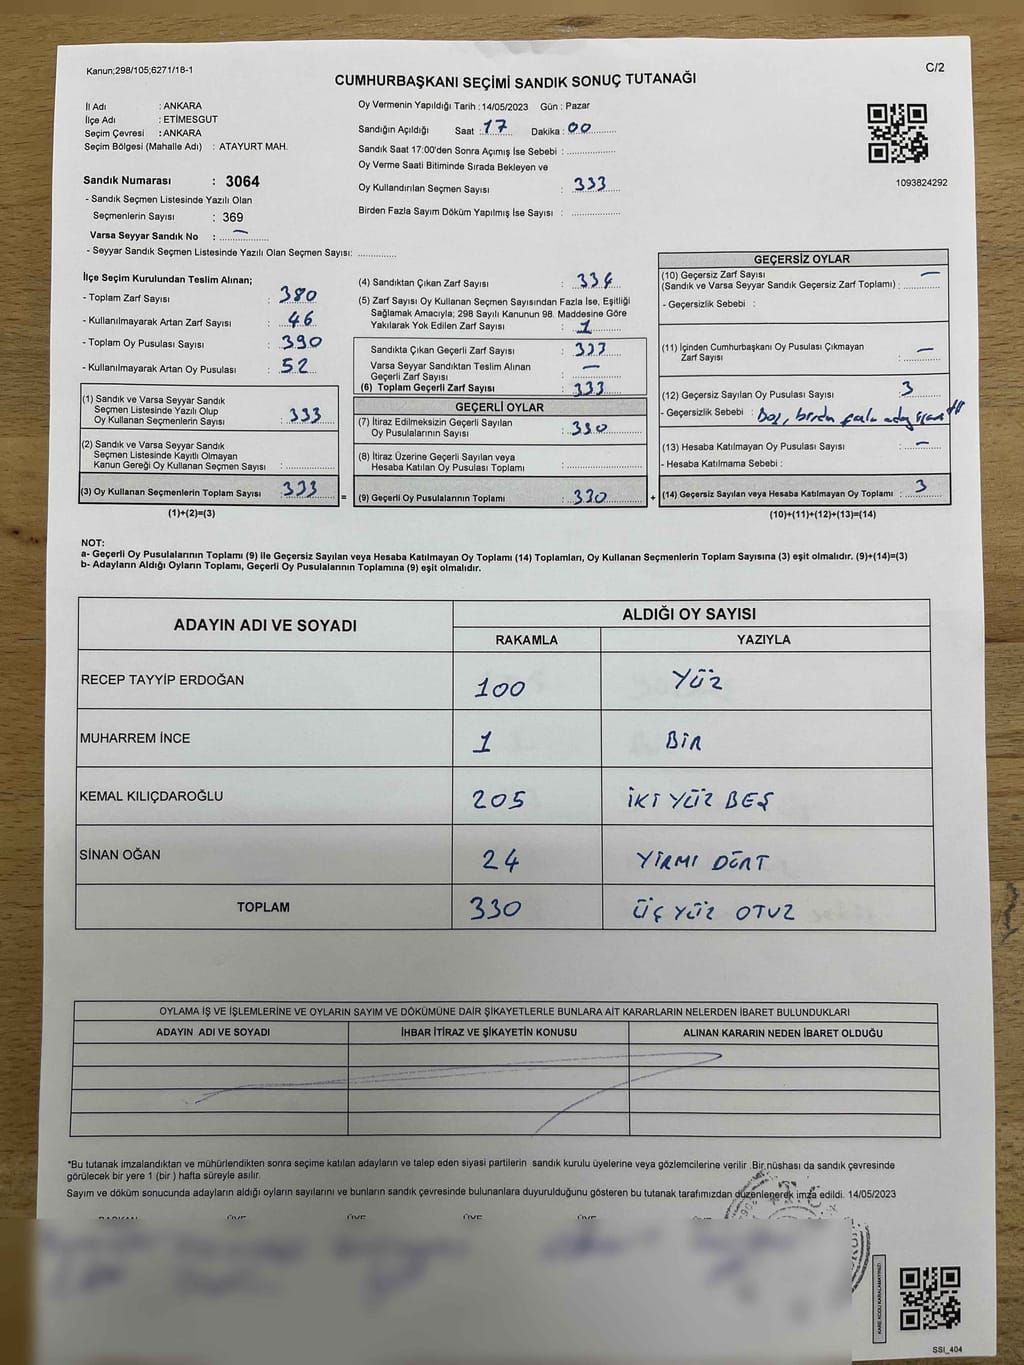 Kanun;298/105;6271/18-1
C/2
CUMHURBAŞKANI SEÇİMİ SANDIK SONUÇ TUTANAĞI
İl Adı : ANKARA
İlçe Adı : ETİMESGUT
Seçim Çevresi : ANKARA
Seçim Bölgesi (Mahalle Adı) : ATAYURT MAH.
Sandık Numarası : 3064
- Sandık Seçmen Listesinde Yazılı Olan
Seçmenlerin Sayısı : 369
Varsa Seyyar Sandık No : –
- Seyyar Sandık Seçmen Listesinde Yazılı Olan Seçmen Sayısı: ............
Oy Vermenin Yapıldığı Tarih : 14/05/2023 Gün : Pazar
Sandığın Açıldığı Saat : 17 Dakika : 00
Sandık Saat 17:00'den Sonra Açımış İse Sebebi : ............
Oy Verme Saati Bitiminde Sırada Bekleyen ve
Oy Kullandırılan Seçmen Sayısı : 333
Birden Fazla Sayım Döküm Yapılmış İse Sayısı : ............
1093824292
İlçe Seçim Kurulundan Teslim Alınan;
- Toplam Zarf Sayısı : 380
- Kullanılmayarak Artan Zarf Sayısı : 46
- Toplam Oy Pusulası Sayısı : 390
- Kullanılmayarak Artan Oy Pusulası : 52
(1) Sandık ve Varsa Seyyar Sandık
Seçmen Listesinde Yazılı Olup
Oy Kullanan Seçmenlerin Sayısı : 333
(2) Sandık ve Varsa Seyyar Sandık
Seçmen Listesinde Kayıtlı Olmayan
Kanun Gereği Oy Kullanan Seçmen Sayısı : ............
(3) Oy Kullanan Seçmenlerin Toplam Sayısı : 333
(1)+(2)=(3)
(4) Sandıktan Çıkan Zarf Sayısı : 334
(5) Zarf Sayısı Oy Kullanan Seçmen Sayısından Fazla İse, Eşitliği
Sağlamak Amacıyla; 298 Sayılı Kanunun 98. Maddesine Göre
Yakılarak Yok Edilen Zarf Sayısı : 1
Sandıkta Çıkan Geçerli Zarf Sayısı : 333
Varsa Seyyar Sandıktan Teslim Alınan
Geçerli Zarf Sayısı : –
(6) Toplam Geçerli Zarf Sayısı : 333
GEÇERLİ OYLAR
(7) İtiraz Edilmeksizin Geçerli Sayılan
Oy Pusulalarının Sayısı : 330
(8) İtiraz Üzerine Geçerli Sayılan veya
Hesaba Katılan Oy Pusulası Toplamı : ............
= (9) Geçerli Oy Pusulalarının Toplamı : 330
GEÇERSİZ OYLAR
(10) Geçersiz Zarf Sayısı
(Sandık ve Varsa Seyyar Sandık Geçersiz Zarf Toplamı) : –
- Geçersizlik Sebebi :
(11) İçinden Cumhurbaşkanı Oy Pusulası Çıkmayan
Zarf Sayısı : –
(12) Geçersiz Sayılan Oy Pusulası Sayısı : 3
- Geçersizlik Sebebi : Boş, birden fazla aday
(13) Hesaba Katılmayan Oy Pusulası Sayısı : –
- Hesaba Katılmama Sebebi :
+ (14) Geçersiz Sayılan veya Hesaba Katılmayan Oy Toplamı : 3
(10)+(11)+(12)+(13)=(14)
NOT:
a- Geçerli Oy Pusulalarının Toplamı (9) ile Geçersiz Sayılan veya Hesaba Katılmayan Oy Toplamı (14) Toplamları, Oy Kullanan Seçmenlerin Toplam Sayısına (3) eşit olmalıdır. (9)+(14)=(3)
b- Adayların Aldığı Oyların Toplamı, Geçerli Oy Pusulalarının Toplamına (9) eşit olmalıdır.
ADAYIN ADI VE SOYADI ALDIĞI OY SAYISI
RAKAMLA YAZIYLA
RECEP TAYYİP ERDOĞAN 100 YÜZ
MUHARREM İNCE 1 BİR
KEMAL KILIÇDAROĞLU 205 İKİ YÜZ BEŞ
SİNAN OĞAN 24 YİRMİ DÖRT
TOPLAM 330 ÜÇ YÜZ OTUZ
OYLAMA İŞ VE İŞLEMLERİNE VE OYLARIN SAYIM VE DÖKÜMÜNE DAİR ŞİKAYETLERLE BUNLARA AİT KARARLARIN NELERDEN İBARET BULUNDUKLARI
ADAYIN ADI VE SOYADI İHBAR İTİRAZ VE ŞİKAYETİN KONUSU ALINAN KARARIN NEDEN İBARET OLDUĞU
*Bu tutanak imzalandıktan ve mühürlendikten sonra seçime katılan adayların ve talep eden siyasi partilerin sandık kurulu üyelerine veya gözlemcilerine verilir .Bir nüshası da sandık çevresinde
görülecek bir yere 1 (bir ) hafta süreyle asılır.
Sayım ve döküm sonucunda adayların aldığı oyların sayılarını ve bunların sandık çevresinde bulunanlara duyurulduğunu gösteren bu tutanak tarafımızdan düzenlenerek imza edildi. 14/05/2023
BAŞKAN ÜYE ÜYE ÜYE ÜYE
KARE KODU KARALAMAYINIZ!
SSI_404